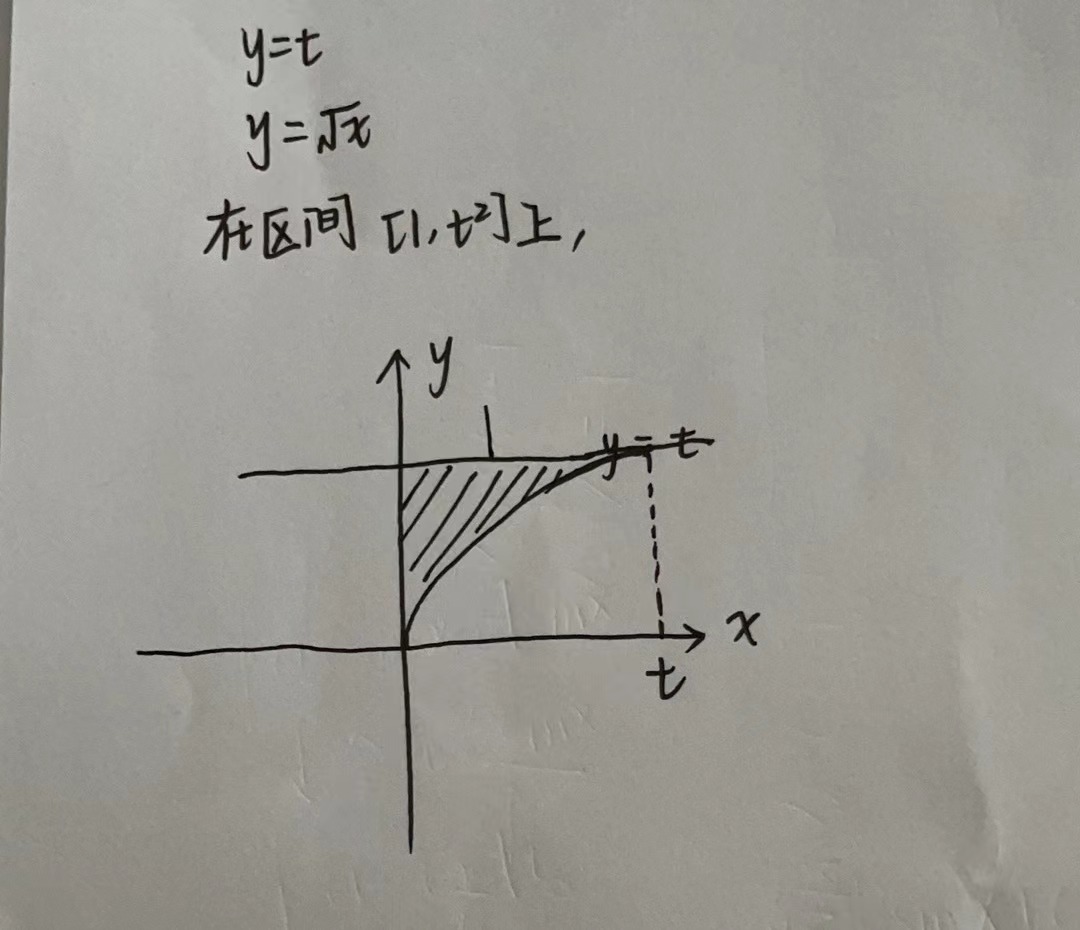 y=t
y=√x
在区间[1,t²]上,
y
y=t
x
t